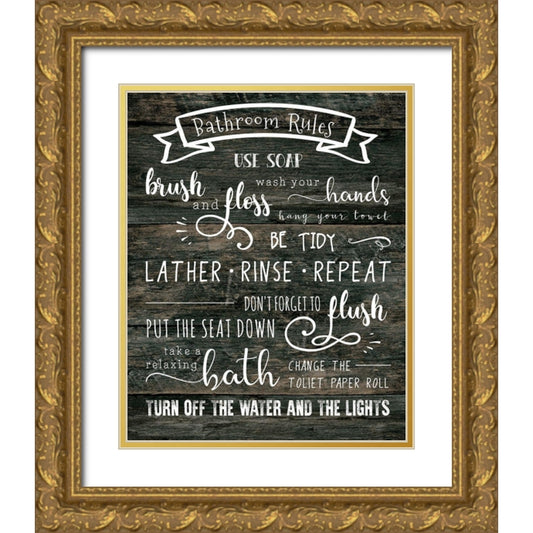 Bathroom Rules
USE SOAP
brush and floss
wash your hands
hang your towel
BE TIDY
LATHER • RINSE • REPEAT
DON'T FORGET TO flush
PUT THE SEAT DOWN
take a relaxing bath
CHANGE THE
TOLIET PAPER ROLL
TURN OFF THE WATER AND THE LIGHTS